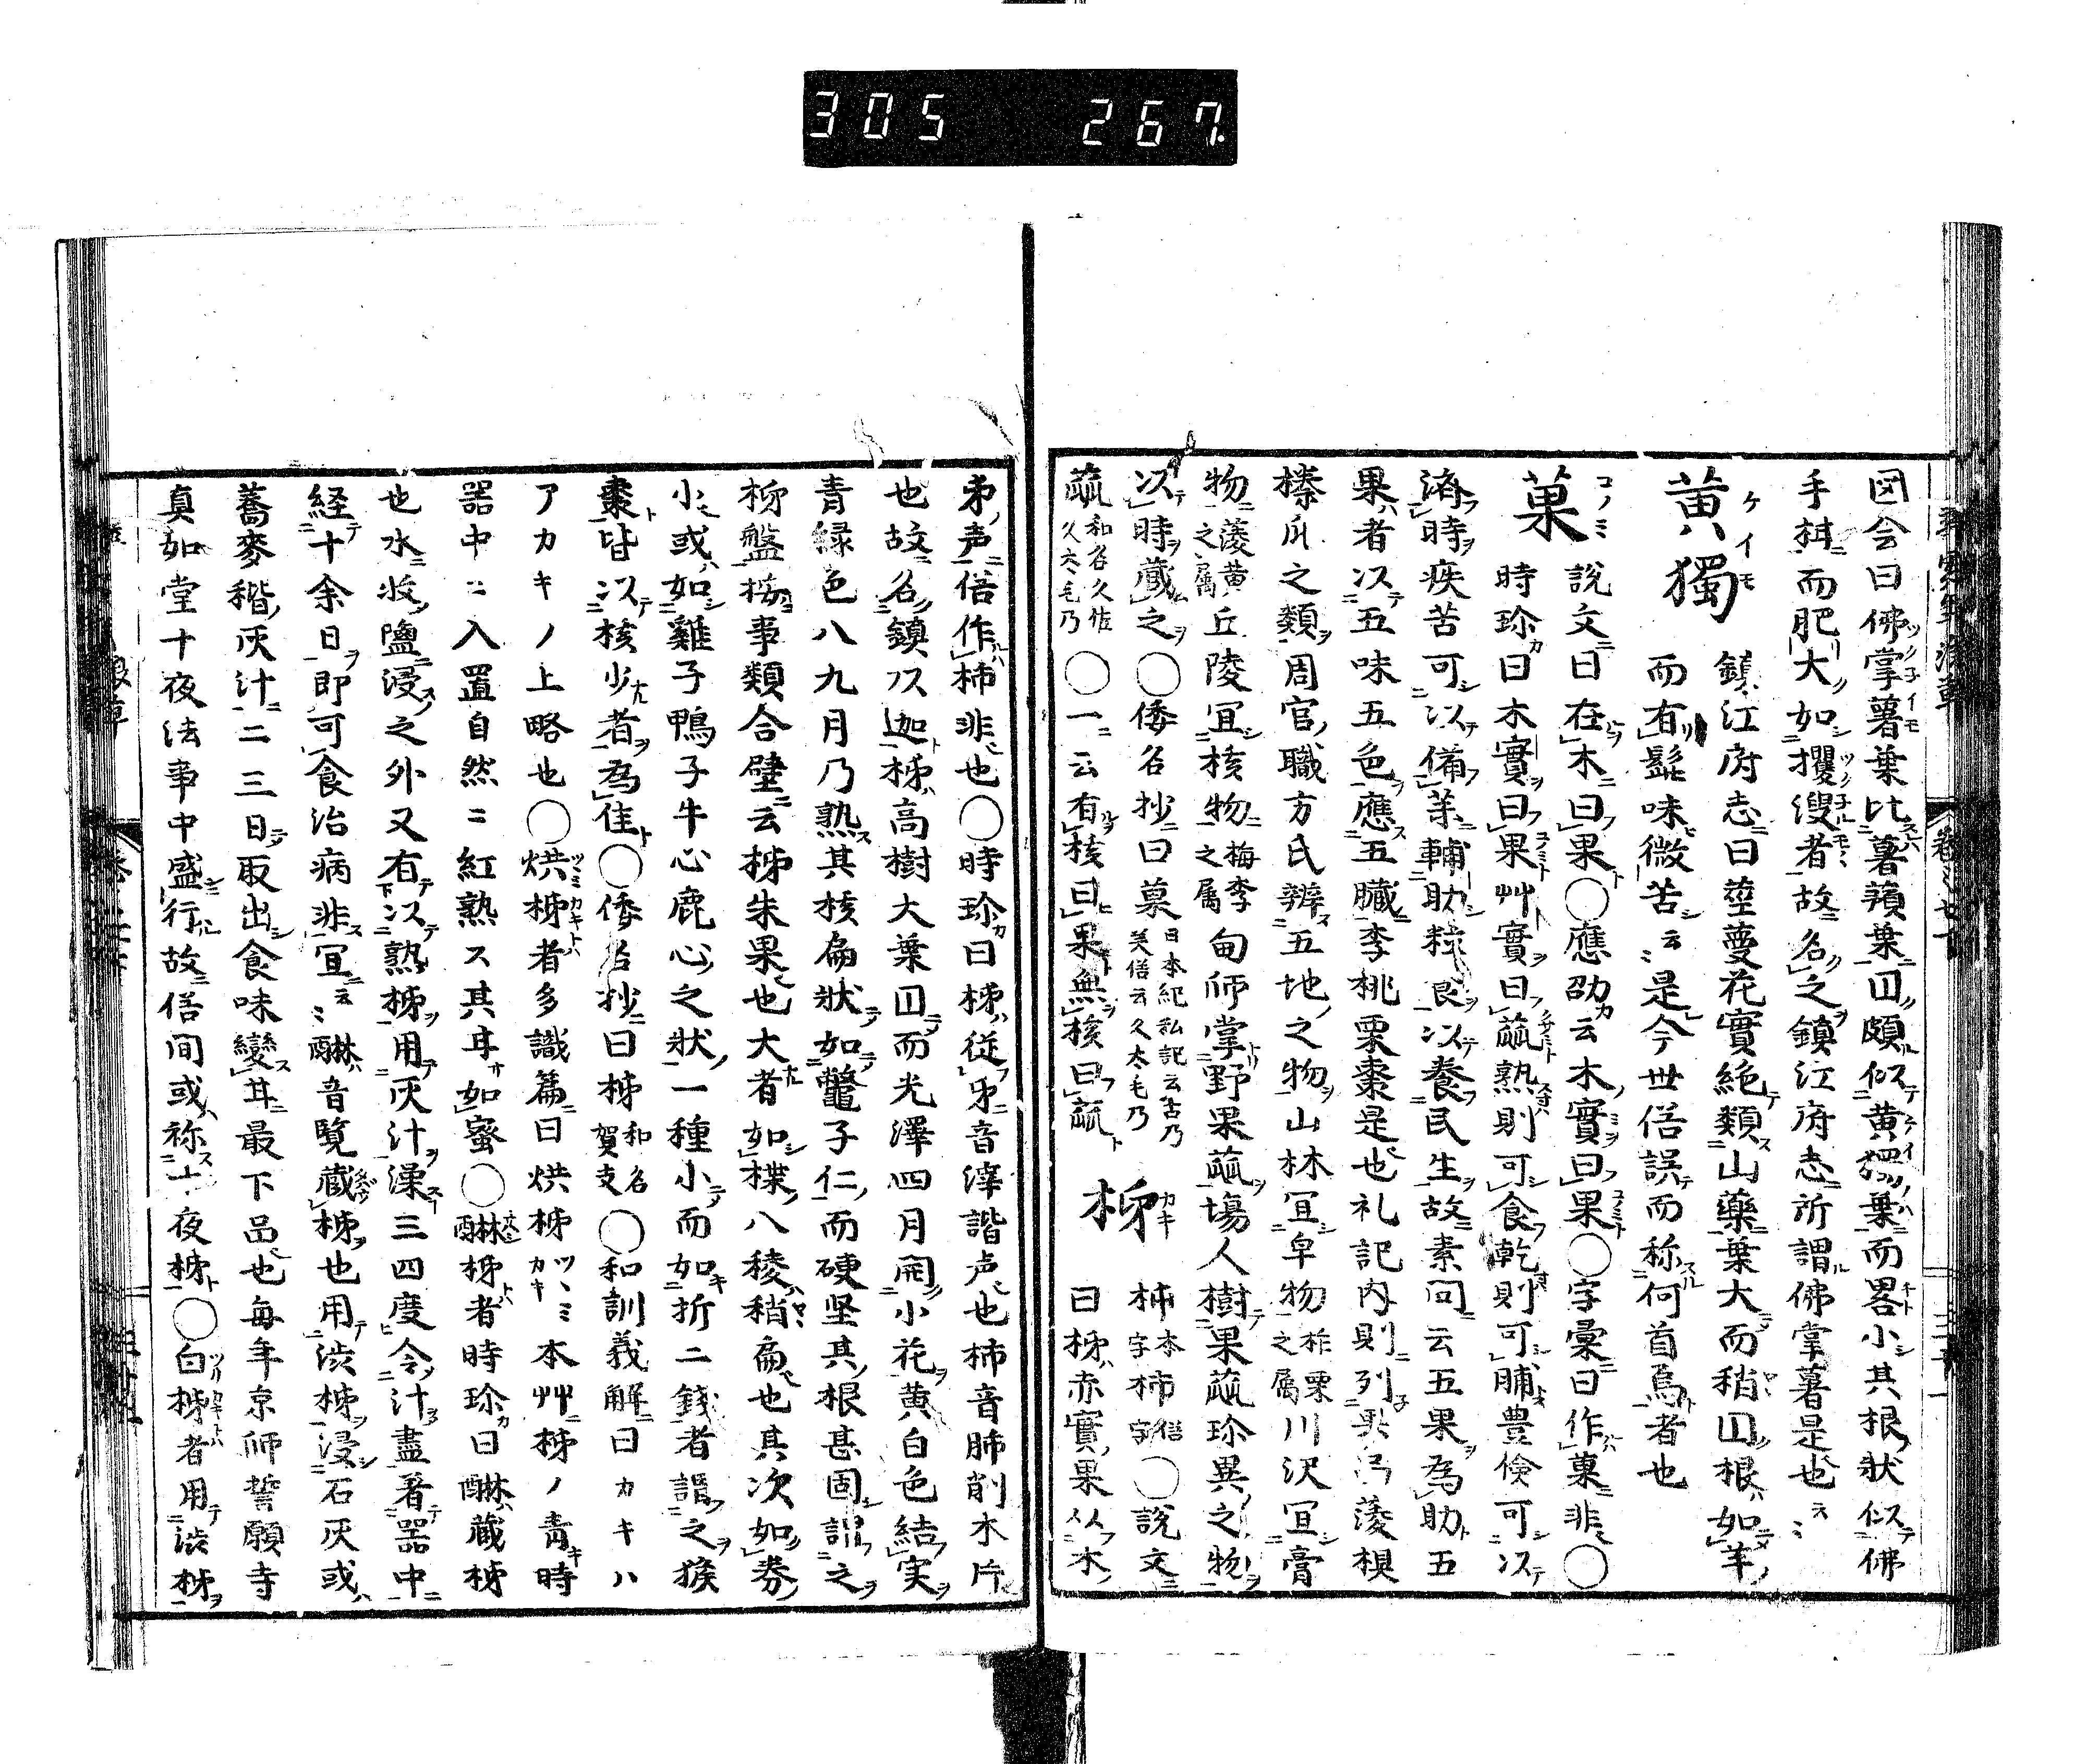 305 267
図会曰佛掌薯葉比薯蕷葉団頗似黄獨葉而畧小其根状似佛
手柑而肥大如攫溲者故名之鎮江府志所謂佛掌薯是也
黄獨 ケイモ 鎮江府志曰莖蔓花實絶類山藥葉大而稍団根如羊
而有髭味微苦云々是今世俗誤而称何首烏者也
菓 コノミ 説文曰在木曰果○應劭云木實曰果○字彙曰作菓非○
時珍曰木實曰果艸實曰蓏熟則可食乾則可脯豊倹可以
済時疾苦可以備茶輔助粒食以養民生故素問云五果為助五
果者以五味五色應五臓李桃栗棗是也礼記内則列
榛瓜之類周官職方氏辨五地之物山林宜皁物柞栗之属川沢宜膏
物菱黄之属丘陵宜核物梅李之属甸師掌野果蓏塲人樹果蓏珍異之物
以時藏之○倭名抄曰菓日本紀私記云古乃美俗云久太毛乃
蓏和名久佐久太毛乃○一云有核曰果無核曰蓏
柹 カキ 柿本字柿俗字○説文曰柹赤實果从木
𠂔声俗作柿非也○時珍曰柹従𠂔音滓諧声也柿音肺削木片
也故名鎮頭迦柹高樹大葉団而光澤四月開小花黄白色結実
青緑色八九月乃熟其核扁状如鼈子仁而硬堅其根甚固謂之
柹盤按事類合璧云柹朱果也大者如楪八稜稍扁也其次如拳
小或如雞子鴨子牛心鹿心之状一種小而如折二銭者謂之猴
棗皆以核少者為佳○倭名抄曰柹和名賀支○和訓義解曰カキハ
アカキノ上略也○烘柹者多識篇曰烘柹ツヽミカキ本艸柹ノ青時
器中ニ入置自然ニ紅熟ス其耳如蜜○醂柹者時珍曰醂藏柹
也水收鹽浸之外又有以熟柹用灰汁澡三四度令汁盡著器中
経十余日即可食治病非宜云々醂音覧藏柹也用渋柹浸石灰或
蕎麥稭灰汁二三日取出食味變耳最下品也毎年京師誓願寺
真如堂十夜法事中盛行故俗間或称十夜柹○白柹者用渋柹